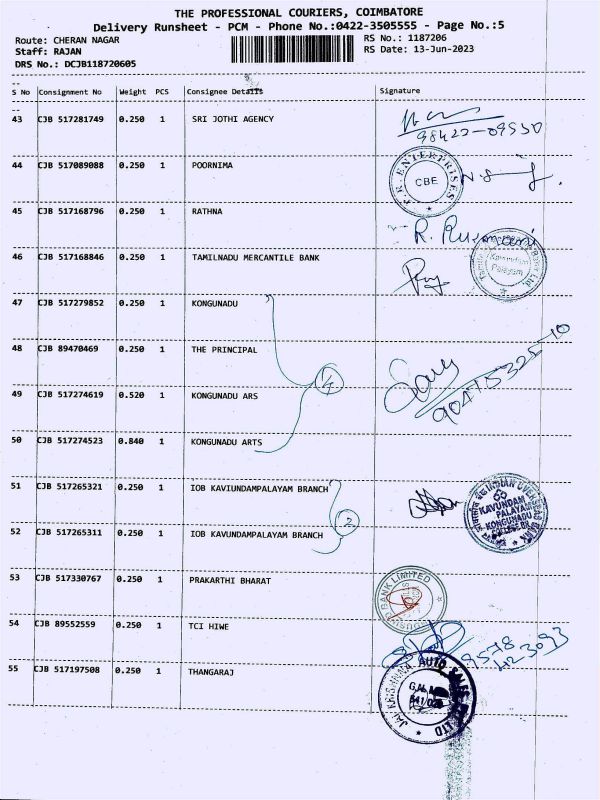 THE PROFESSIONAL COURIERS, COIMBATORE
Delivery Runsheet - PCM - Phone No.:0422-3505555 - Page No.:5
Route: CHERAN NAGAR
RS No.: 1187206
Staff: RAJAN
RS Date: 13-Jun-2023
DRS No.: DCJB118720605
S No Consignment No Weight PCS Consignee Details Signature
43 CJB 517281749 0.250 1 SRI JOTHI AGENCY
98422-09530
44 CJB 517089088 0.250 1 POORNIMA
ENTERPRISES
CBE
45 CJB 517168796 0.250 1 RATHNA
R.
46 CJB 517168846 0.250 1 TAMILNADU MERCANTILE BANK
Kavundam
Palayam
47 CJB 517279852 0.250 1 KONGUNADU
48 CJB 89470469 0.250 1 THE PRINCIPAL
49 CJB 517274619 0.520 1 KONGUNADU ARS
50 CJB 517274523 0.840 1 KONGUNADU ARTS
51 CJB 517265321 0.250 1 IOB KAVIUNDAMPALAYAM BRANCH
INDIAN OVERSEAS BANK
KAVUNDAM
PALAYAM
KONGUNADU
COLLEGE BR.
2
52 CJB 517265311 0.250 1 IOB KAVUNDAMPALAYAM BRANCH
53 CJB 517330767 0.250 1 PRAKARTHI BHARAT
BANK LIMITED
54 CJB 89552559 0.250 1 TCI HIWE
9578
423093
55 CJB 517197508 0.250 1 THANGARAJ
JAI KRISHNAA AUTO SALES (P) LTD